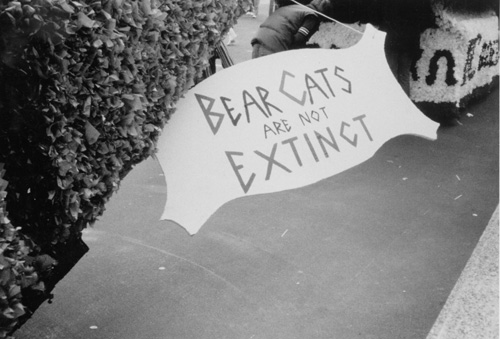 BEAR CATS
ARE NOT
EXTINCT